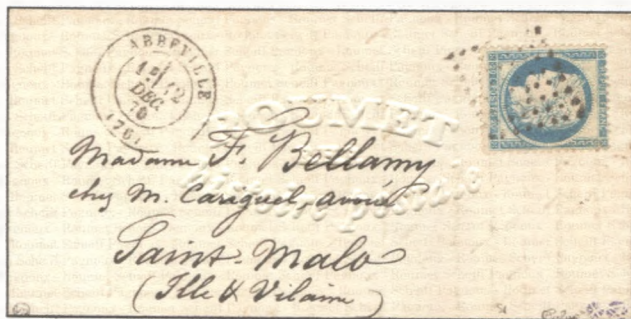 ABBEVILLE
12
DEC.
70
(76)
ROUMET
histoire postale
Madame F. Bellamy
chez M. Cariguel avoué
Saint-Malo
(Ille & Vilaine)